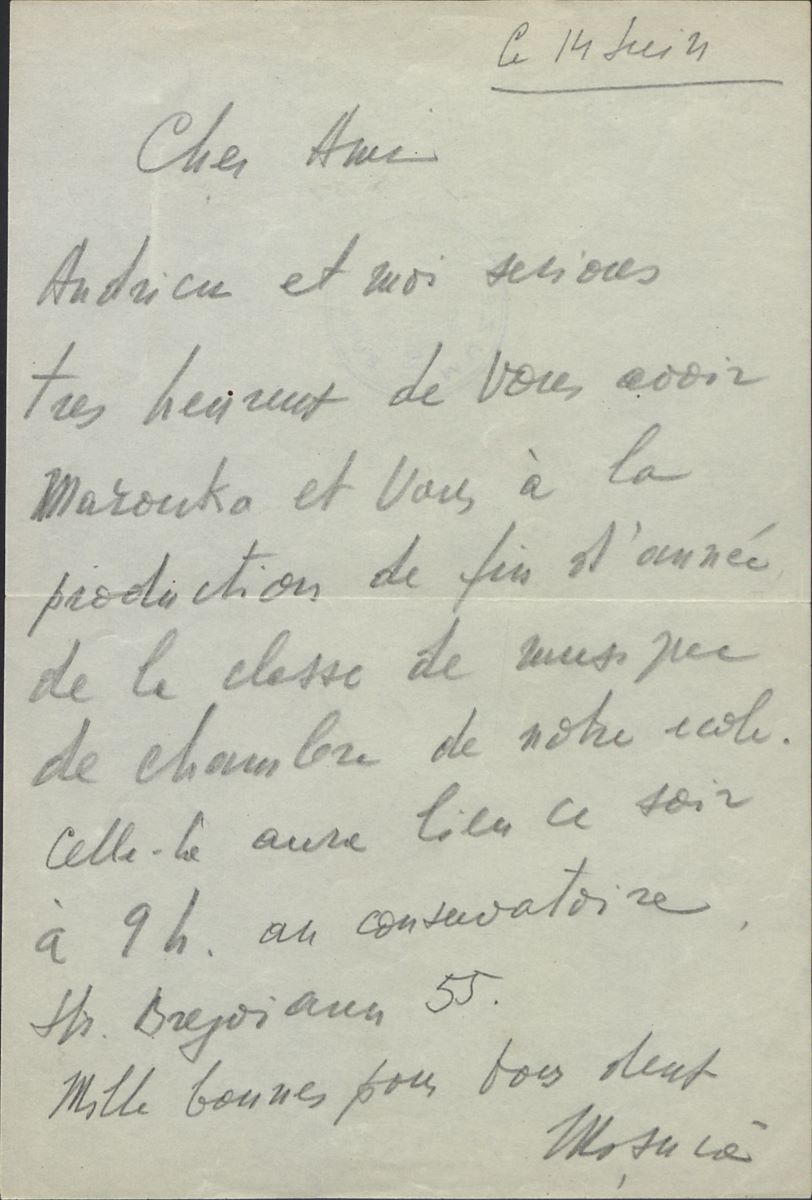 Ce 14 Juin
Cher Ami
Andricu et moi serions
tres heureux de Vous avoir
Marouka et Vous à la
production de fin d'année
de la classe de musique
de chambre de notre ecole.
Celle-la aura lieu ce soir
à 9 h. au conservatoire,
Str. Brezoianu 55.
Mille bonnes pour vous deux